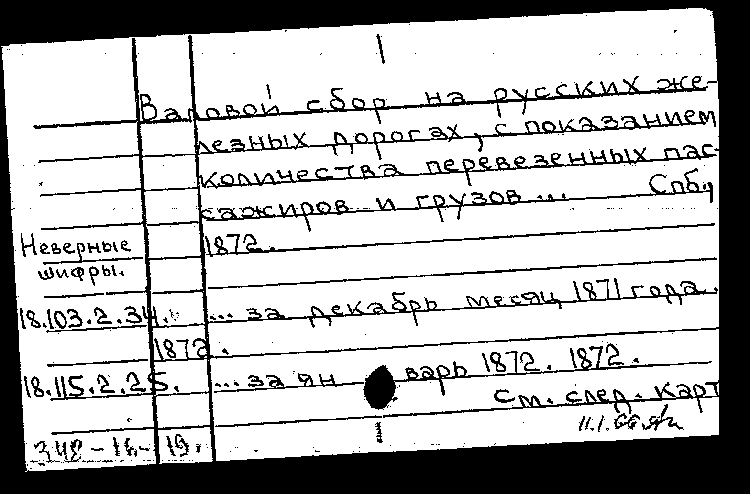 Валовой сбор на русских же-
лезных дорогах, с показанием
количества перевезенных пас-
сажиров и грузов ... Спб.,
Неверные 1872.
шифры.
18.103.2.34. ... за декабрь месяц 1871 года.
1872.
18.115.2.25. ... за январь 1872. 1872.
См. след. карт
348-16-19.